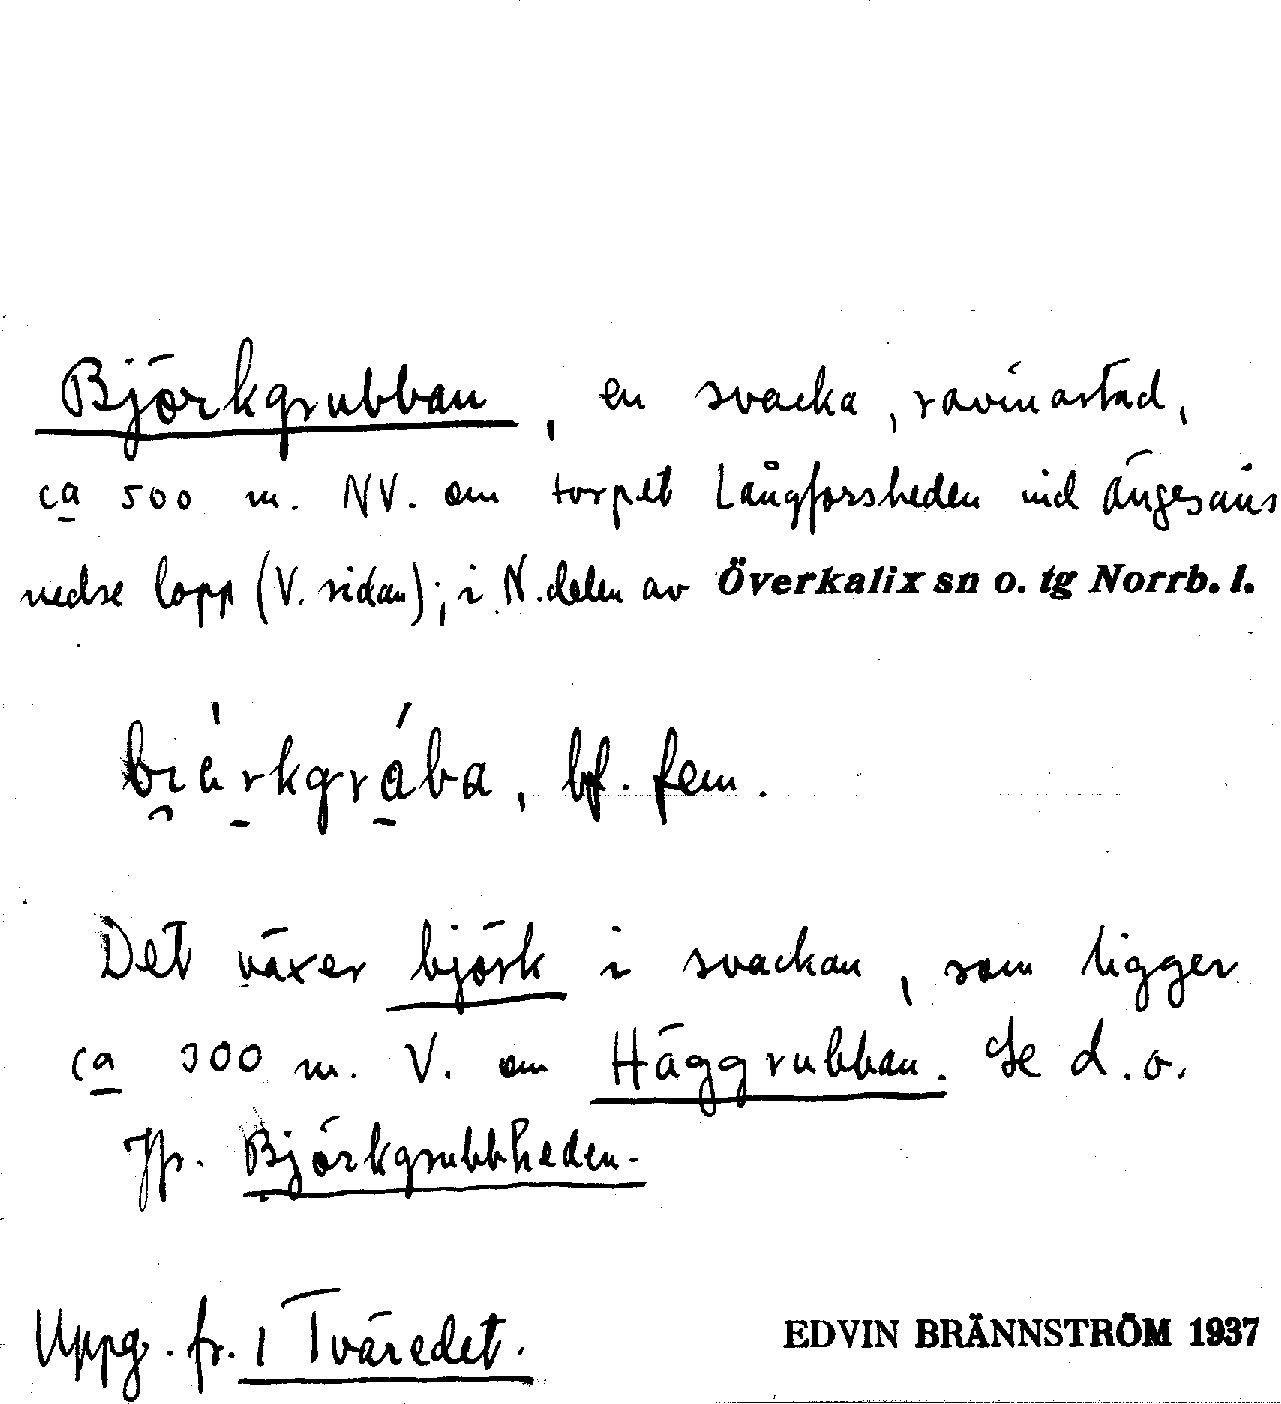 Björkgrubban, en svacka, ravinartad,
ca 500 m. NV. om torpet Långforsheden vid Ängesåns
nedre lopp (V. sidan); i N. delen av Överkalix sn o. tg Norrb. l.
bf. fem.
Det växer björk i svackan, som ligger
ca 300 m. V. om Häggrubban. Se d. o.
Jfr. Björkgrubbheden.
Uppg. fr. 1 Tväredet.
EDVIN BRÄNNSTRÖM 1937